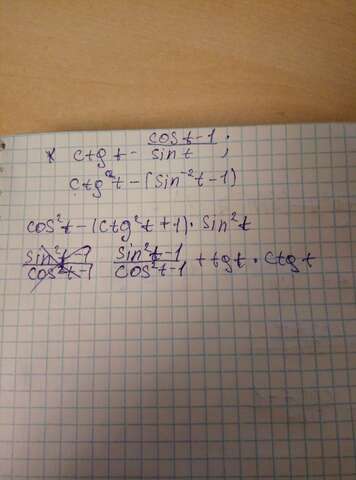 * ctg t - (cos t - 1)/(sin t);
ctg²t - (sin⁻²t - 1)
cos²t - (ctg²t + 1) · sin²t
(sin²t - 1)/(cos²t - 1) (sin²t - 1)/(cos²t - 1) + tg t · ctg t